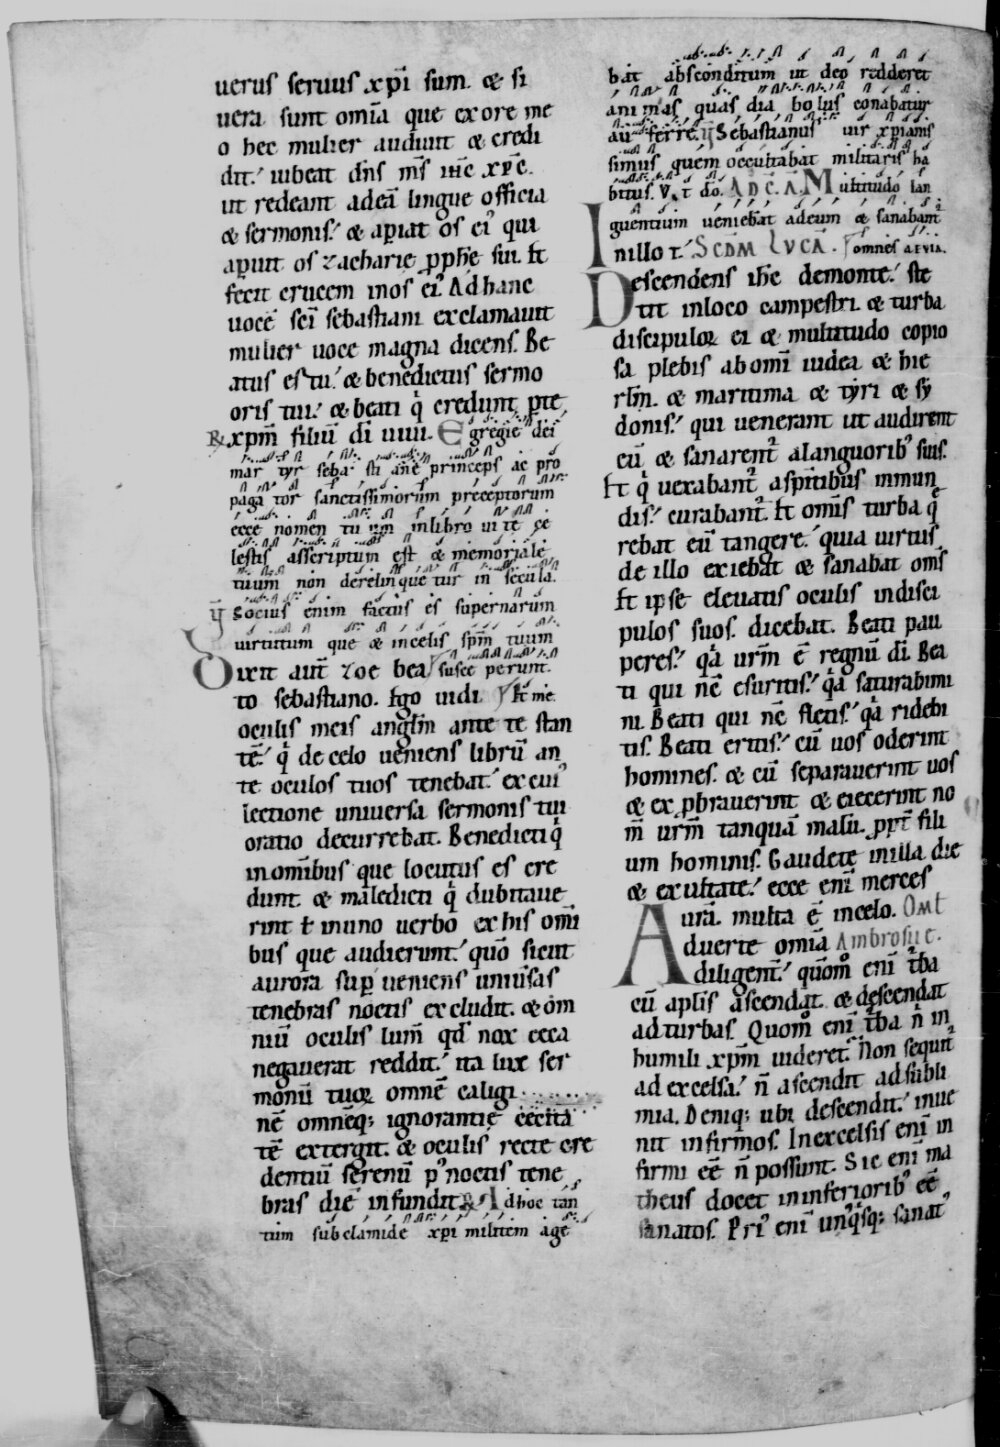 uerus seruus xpi sum. & si
uera sunt omīa que ex ore me
o hec mulier audiunt & credi
dit. iubeat dn̄s m̄s ih̄c xp̄c.
ut redeant adeā lingue officia
& sermonis. & apiat os ei' qui
aperuit os zacharię pphe sui. &
fecit crucem inos ei'. Ad hanc
uocē sc̄i sebastiani exclamauit
mulier uoce magna dicens. Be
atus es tu. & benedictus sermo
oris tui. & beati q̇ credunt p te
℟ xpm̄ filiū di uiui. Egregie dei
mar tyr seba sti ane princeps ac pro
paga tor sanctissimorum preceptorum
ecce nomen tu um inlibro uite cę
lestis asscriptum est & memoriale
tuum non derelinque tur in secula.
℣ Socius enim factus es supernarum
uirtutum que & incelis sp̄m tuum
Dixit aut̄ zoe bea susce perunt.
to sebastiano. Ego uidi Et me.
oculis meis angl̄m ante te stan
tē. q̇ de celo ueniens librū an
te oculos tuos tenebat. ex cui'
lectione uniuersa sermonis tui
oratio decurrebat. Benedicti q̇
in omībus que locutus es cre
dunt. & maledicti q̇ dubitaue
rint ł inuno uerbo ex his omī
bus que audierunt. quō sicut
aurora sup ueniens uniūsas
tenebras noctis excludit. & om̄
niū oculis lum̄. qd̄ nox ceca
negauerat reddit. ita lux ser
monū tuoꝝ omnē caligi
nē omneq; ignorantię cecita
tē extergit. & oculis recte cre
dentiū serenū p' noctis tene
bras diē infundit. ℟ Ad hoc tan
tum sub clamide xpi militem age
bat absconditum ut deo redderet
ani mas quas dia bolus conabatur
au ferre. ℣ Sebastianus uir xpianis
simus quem occultabat militaris ha
bitus. V. t do. AD C. A. Multitudo lan
guentium ueniebat adeum & sanabant'
Inillo t. SCDM LVCA. omnes aeuia.
Descendens ih̄c demonte. ste
tit inloco campestri. & turba
discipuloꝝ ei & multitudo copio
sa plebis ab omī iudea & hie
rlm̄. & maritima & tyri & sy
donis. qui uenerant ut audirent
eū & sanarent' alanguorib' suis.
Et q̇ uexabant' a sp̄itibus inmun
dis. curabant'. Et om̄is turba q̄
rebat eū tangere. quia uirtus
de illo exiebat & sanabat om̄s
Et ipse eleuatis oculis indisci
pulos suos. dicebat. Beati pau
peres. q̄a ur̄m ē regnū di. Bea
ti qui nc̄ esuritis. q̄a saturabimi
ni. Beati qui nc̄ fletis. q̄a ridebi
tis. Beati eritis. cū uos oderint
homines. & cū separauerint uos
& exprobrauerint & eiecerint no
m̄ ur̄m tanquā malū. ppt̄ fili
um hominis. Gaudete inilla die
& exultate. ecce eni merces
urā. multa ē incelo. Omt
Aduerte omīa Ambrosii e.
diligent'. quom̄ eni t̄ba
cū aplis ascendat. & descendat
adturbas. Quom̄ eni t̄ba n̄ in
humili xpm̄ uideret. Non sequit'
ad excelsa. n̄ ascendit ad subli
mia. Deniq; ubi descendit. inue
nit infirmos. Inexcelsis eni in
firmi eē n̄ possunt. Sic eni ma
theus docet ininferiorib' eē
sanatos. Pri' eni unq̇sq; sanat'